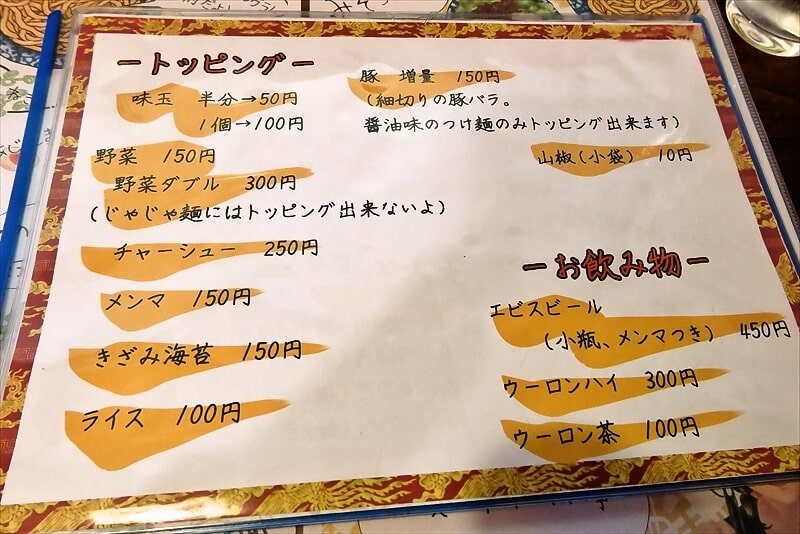 ートッピングー
味玉 半分→50円
1個→100円
野菜 150円
野菜ダブル 300円
(じゃじゃ麺にはトッピング出来ないよ)
チャーシュー 250円
メンマ 150円
きざみ海苔 150円
ライス 100円
豚 増量 150円
(細切りの豚バラ。
醤油味のつけ麺のみトッピング出来ます)
山椒(小袋) 10円
ーお飲み物ー
エビスビール
(小瓶、メンマつき) 450円
ウーロンハイ 300円
ウーロン茶 100円